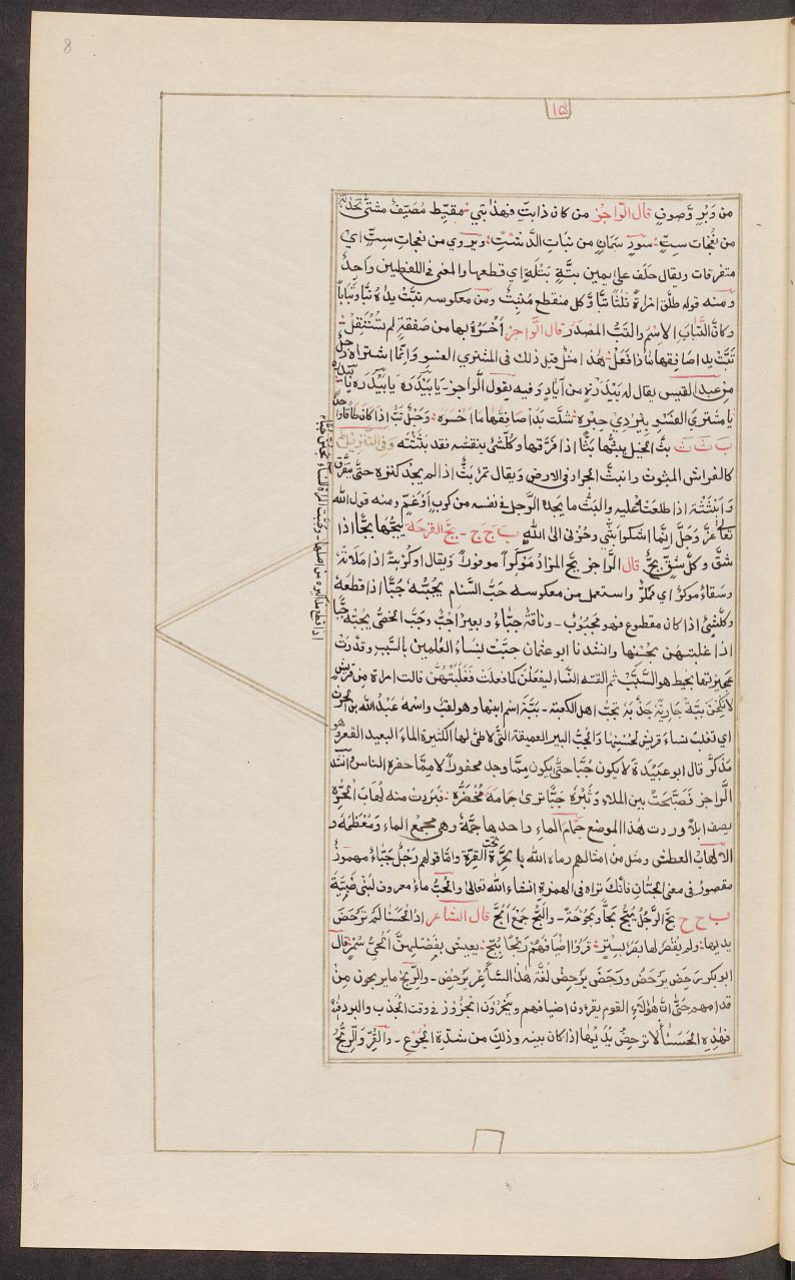 8
١٥
من وَبْرٍ وَّصوفٍ قال الرّاجز من كان ذا بتٍّ فهذا بتي مقيّظ مُصَيّف مشتي تخذته
من نعجات ستٍّ سودٍ سِمَانٍ من نبات الدّشت ويروي من نعجات ستٍّ اي
متفرقات ويقال حلف على يمين بتّةٍ بَتْلَةٍ اي قطعها والمعنى فى اللفظين واحد
ومنه قوله طلّق امراةً ثلثا بتّا وّ كل منقطع مُنبتّ ومن معكوسه تبّت يداه تبّا وتبابًا
وكانّ التباب الاسم والتبّ المصدر قال الرّاجز أخسر بها من صفقةٍ لم تُستقل
تبّت يدا صافقها ماذا فعل هذا مثل قيل ذلك فى المشتري الفسو وانّما اشتراه رجل
من عبد القيس يقال له بيدرة من اياد وفيه يقول الرّاجز يا بيدره يا بيدره يا بيدره
يا مشتري الفسو ببردي حبره شلّت يدا صافقها ما اخسره
ب ث ث بثّ الخيل يبثّها بثّا اذا فرّقها وكلّ شئ ينقشه فقد بثثته وفى التنزيل
كالفراش المبثوث وانبثّ الجراد فى الارض ويقال تمر بثّ اذا لم يجد كنزه حتّى يتفرّق
وابثثته اذا طلعت عليه والبثّ ما يجده الرّجل فى نفسه من كرب او غمّ ومنه قول الله
تعالى عزّ وجلّ انّما اشكوا بثّي وحزنى الى الله ب ج ج - بجّ القرحة يبجّها بجّا اذا
شقّ وكلّ شقّ بجّ قال الرّاجز بجّ المزاد مُوكرًا موفورًا ويقال اوكر بة اذا ملأته
وسقاء موكر اي مملو واستعمل من معكوسه جبّ السّنام يجبّه جبّا اذا قطعه
وكل شئ اذا كان مقطوع فهو مجبوب - وناقة جبّاء وبعير اجبّ وجبّ الخصىّ يجبّه جبّا
اذا غلبتهن بحسنها وانشدنا ابو عثمان جبّت نساء العلمين بالسبب وقدّرت
عجيزتها بخيط هو السّبب ثم القته النساء ليفعلن كما فعلت فغلبتهنّ قالت امراة من قريش
لانكحنّ ببّه جارية خدبّه تجبّ اهل الكعبة - ببّة اسم ابنها وهو لقب واسمه عبد الله بن الحرث
اي تغلب نساء قريش لحسنها والجبّ البير العميقة التّى لا طى لها الكثيرة الماء البعيد القعر هو
مذكّر قال ابو عبيدة لا يكون جُبّا حتّى يكون ممّا وجد محفورًا لا ممّا حفره الناس انشد
الرّاجز فصبّحت بين الملا وثبره جبّا ترى جمامه مخضرّه فبردت منه لهاب الحرّه
يصف ابلا وردت هذا الموضع جمام الماء واحدها جمّة وهى مجمع الماء ومعظمه و
الالهاب العطش ومثل من امثالهم رماه الله بالحرّة تحت القرّة وامّا قولهم رجل جبّاء مهموز
مقصور فى معنى الجبان فانّك تراه فى الهمزة انشاء الله تعالى والجبّ ماء معروف لبنى ضبيّة
ب ح ح بحّ الرّجل يبحّ بحًّا وبحوحة - والبحّ جمع ابحّ قال الشاعر اذا الحسناء لم ترحض
يديها ولم يقصر لها بصر بستر قروا اضيافهم ربحًا ببحّ يعيش بفضلهنّ الحىّ سمر قال
ابو بكر رحض يرحض ورحض يرحض لغة هذا الشاعر يرحض - والربح ما يربحون من
قداحهم حتّى انّ هؤلاء القوم يقرءون اضيافهم وينحرون الجزور فى وقت الجدب والبرد
فهذه الحسناء لا ترحض يديها اذا كان بينه وذلك من شدّة الجوع - والقرّ والربح